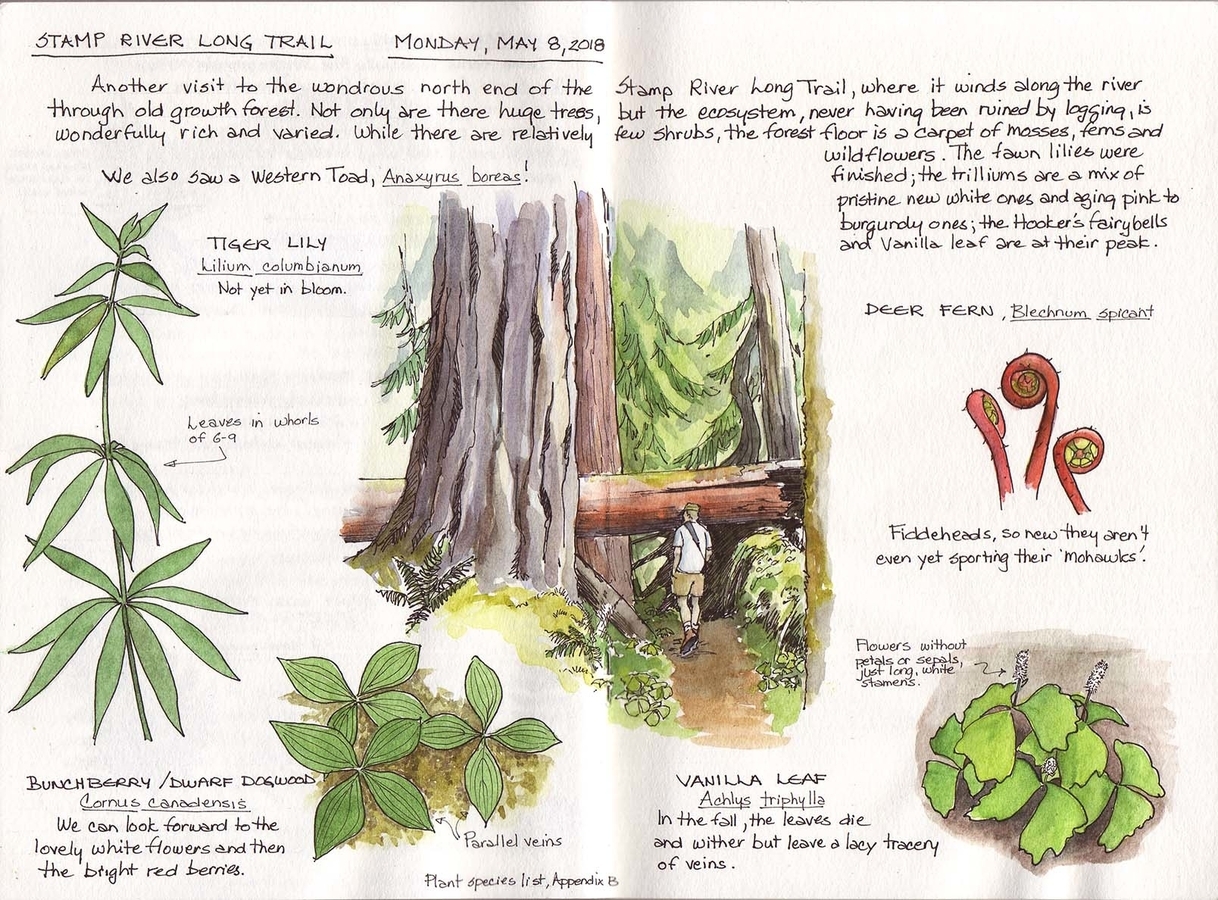 STAMP RIVER LONG TRAIL MONDAY, MAY 8, 2018
Another visit to the wondrous north end of the Stamp River Long Trail, where it winds along the river
through old growth forest. Not only are there huge trees, but the ecosystem, never having been ruined by logging, is
wonderfully rich and varied. While there are relatively few shrubs, the forest floor is a carpet of mosses, ferns and
wildflowers. The fawn lilies were
finished; the trilliums are a mix of
pristine new white ones and aging pink to
burgundy ones; the Hooker's fairybells
and Vanilla leaf are at their peak.
We also saw a Western Toad, Anaxyrus boreas!
TIGER LILY
Lilium columbianum
Not yet in bloom.
Leaves in whorls
of 6-9
DEER FERN, Blechnum spicant
Fiddleheads, so new they aren't
even yet sporting their 'mohawks'.
Flowers without
petals or sepals,
just long, white
stamens.
BUNCHBERRY / DWARF DOGWOOD
Cornus canadensis
We can look forward to the
lovely white flowers and then
the bright red berries.
Parallel veins
VANILLA LEAF
Achlys triphylla
In the fall, the leaves die
and wither but leave a lacy tracery
of veins.
Plant species list, Appendix B